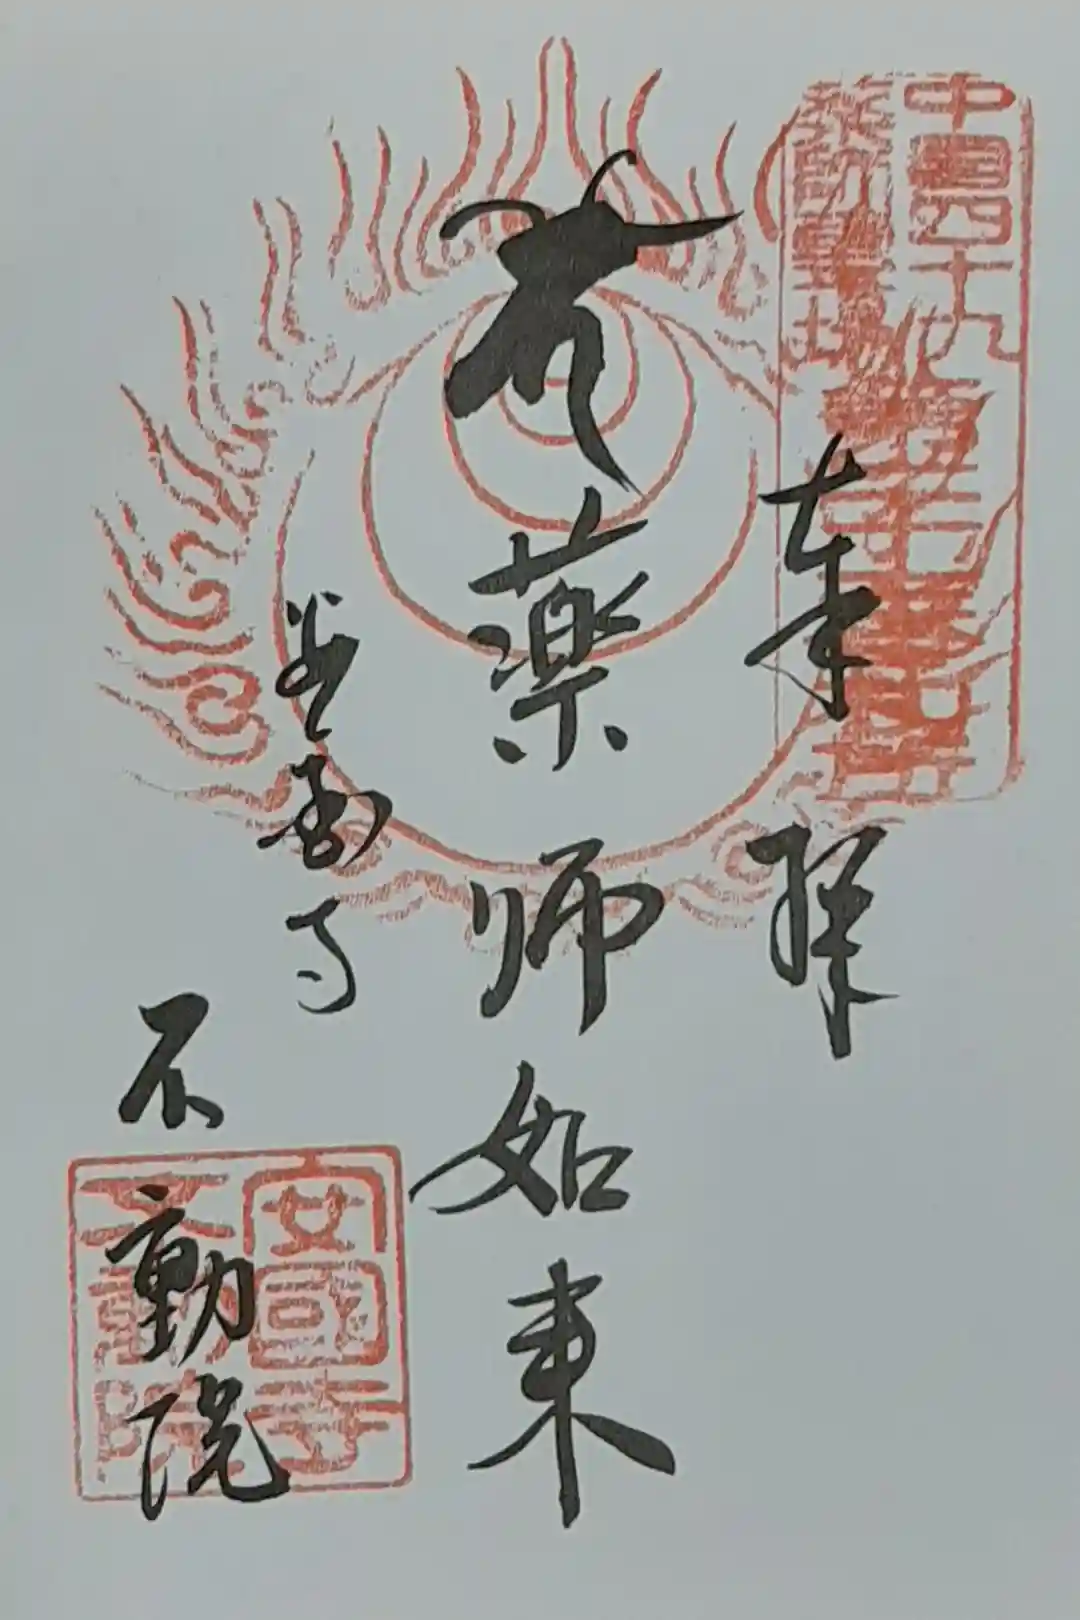 中国四十九
薬師霊場
奉拝
薬師如来
安国寺
不動院
安國寺
不動院